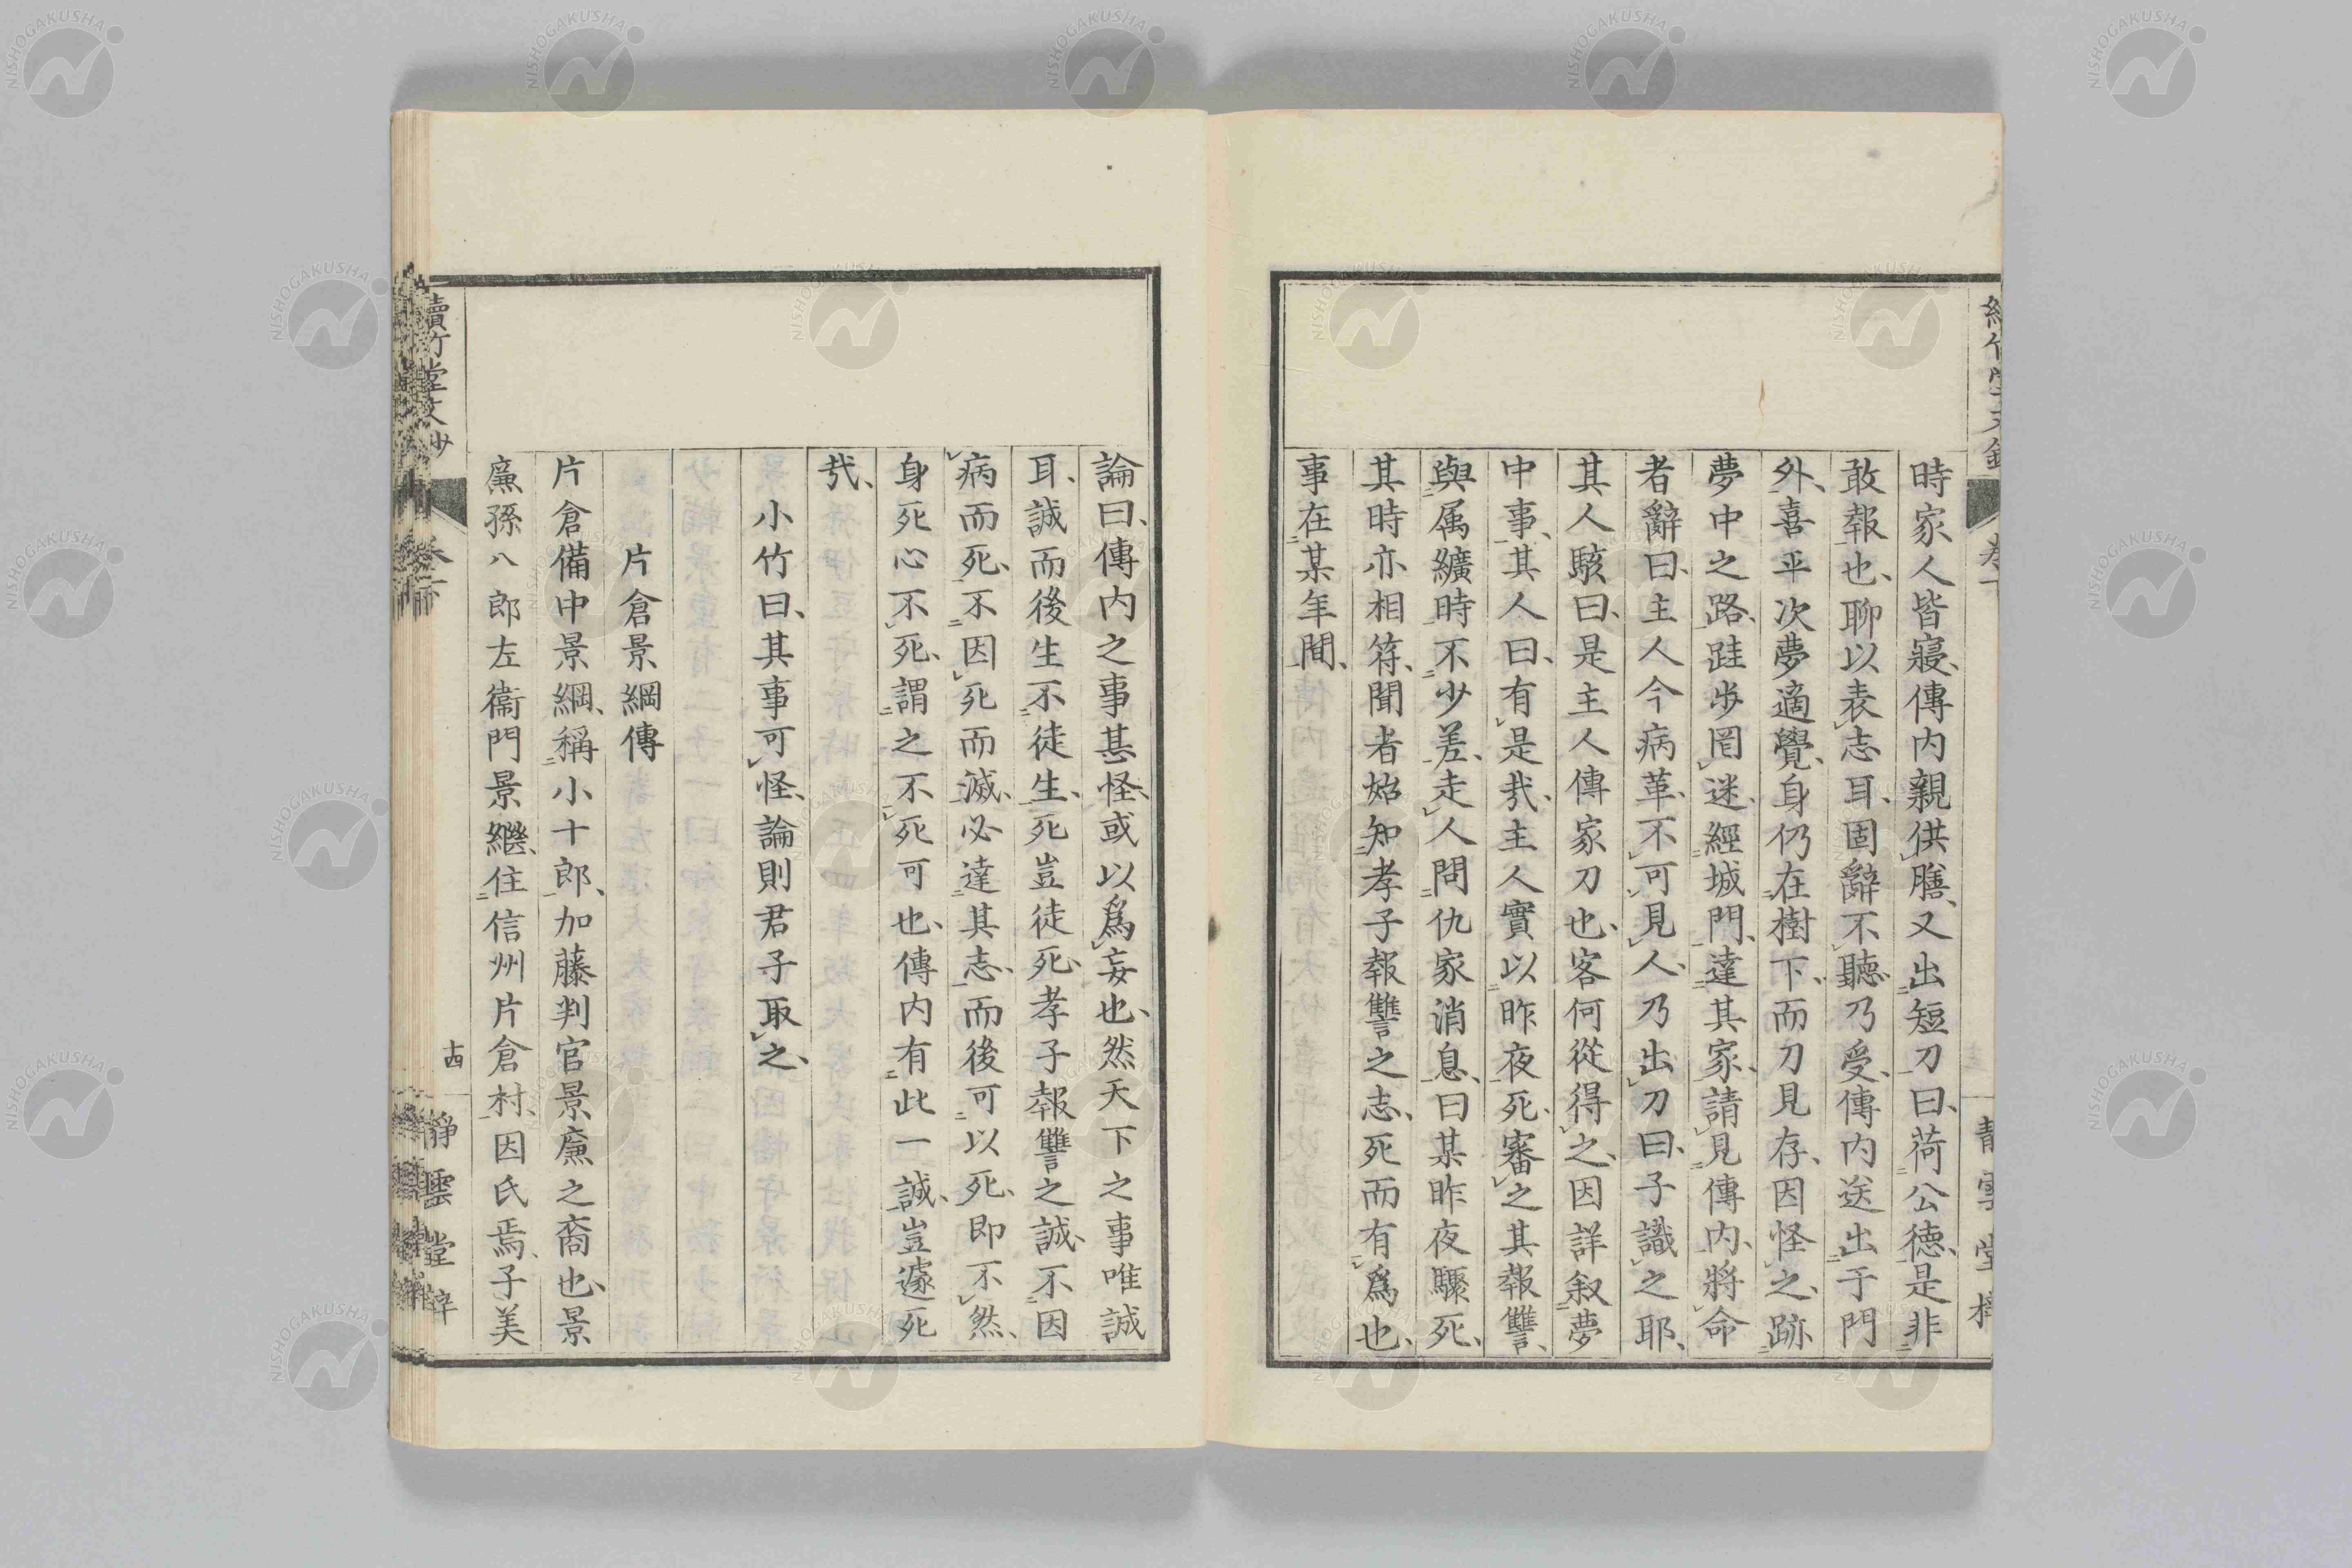 時家人皆寢、傳内親供膳、又出短刀曰、荷公德、是非
敢報也、聊以表志耳、固辭不聽、乃受、傳内送出于門
外、喜平次夢適覺、身仍在樹下、而刀見存、因怪之、跡
夢中之路、跬步罔迷、經城門、達其家、請見傳内、將命
者辭曰、主人今病革、不可見人、乃出刀曰、子識之耶、
其人駭曰、是主人傳家刀也、客何從得之、因詳叙夢
中事、其人曰、有是㦲、主人實以昨夜死、審之其報讐、
與属纊時不少差、走人問仇家消息、曰某昨夜驟死、
其時亦相符、聞者始知孝子報讐之志、死而有爲也、
事在某年間、
論曰、傳内之事甚怪、或以爲妄也、然天下之事唯誠
耳、誠而後生不徒生、死豈徒死、孝子報讐之誠、不因
病而死、不因死而滅、必達其志、而後可以死、即不然、
身死心不死、謂之不死可也、傳内有此一誠、豈遽死
㦲、
小竹曰、其事可怪、論則君子取之、
片倉景綱傳
片倉備中景綱、稱小十郎、加藤判官景廉之裔也、景
廉孫八郎左衞門景繼、住信州片倉村、因氏焉、子美
續竹堂文鈔
卷下
十四
靜雲堂梓